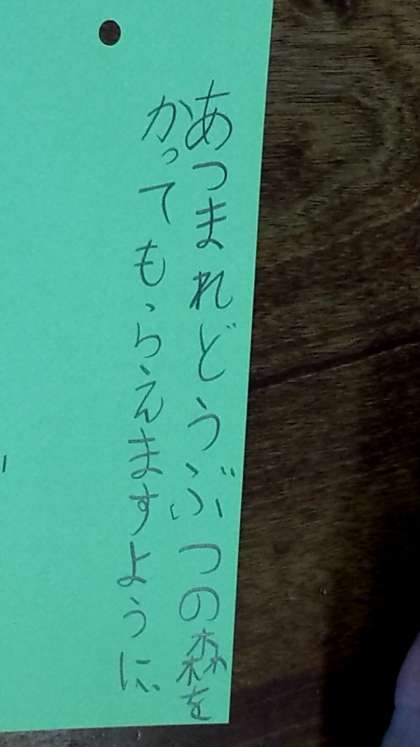 あつまれどうぶつの森を
かってもらえますように